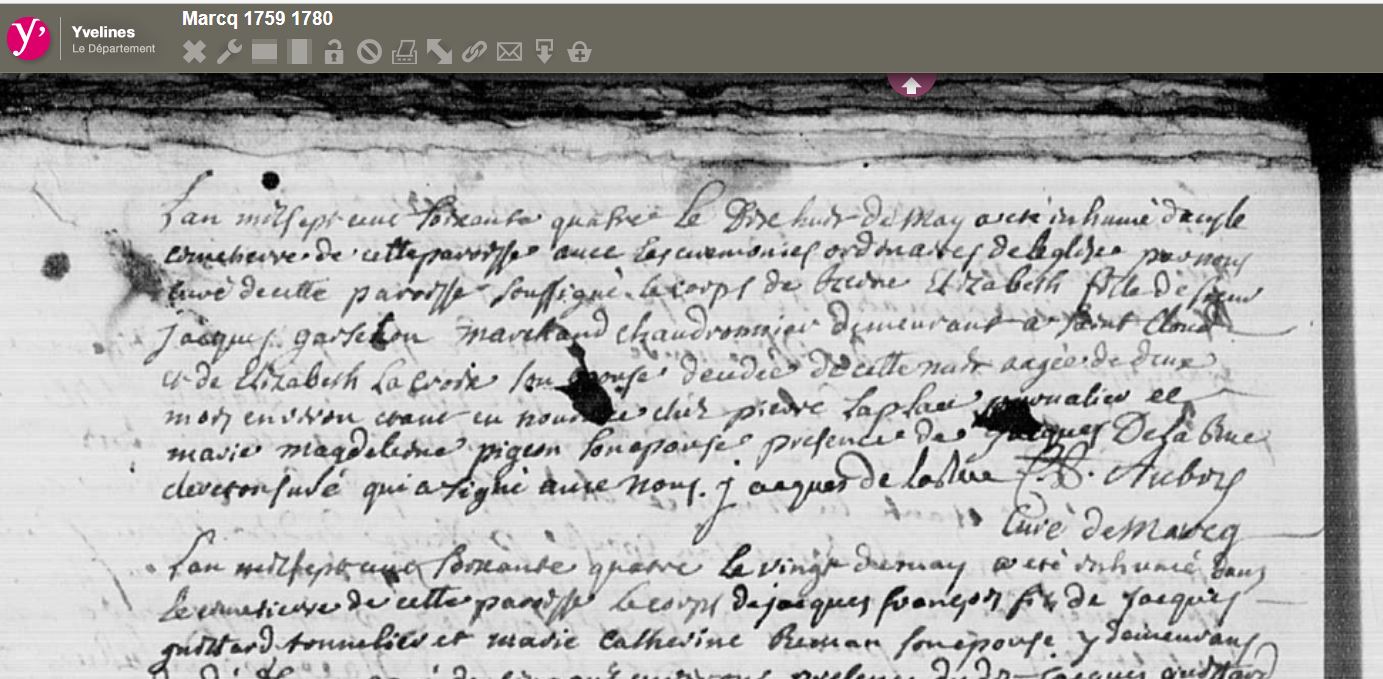 Marcq 1759 1780
Yvelines
Le Département
Lan mil sept cent soixante quatre le Dixe huit de May a eté inhumé dans le
cimetierre de cette paroisse avec les ceremonies ordinaires de leglise par nous
Curé de cette paroisse soussigné le corps de Elizabeth fille de sieur
Jacques marchand chaudronnier demeurant a saint Cloud
et de Elizabeth La croix son epouse decedée de cette nuit aagée de deux
mois environ etant en nourice chez pierre Laplace journalier et
marie magdeleine pigeon son epouse presence de Jacques De la Rue
clerc qui a signé avec nous. jacques de la Rue Aubry
Curé de Marcq
Lan mil sept cent soixante quatre le vingt de may a eté inhumé dans
le cimetierre de cette paroisse le corps de jacques françois fils de jacques
tonnelier et marie catherine son epouse y demeurans